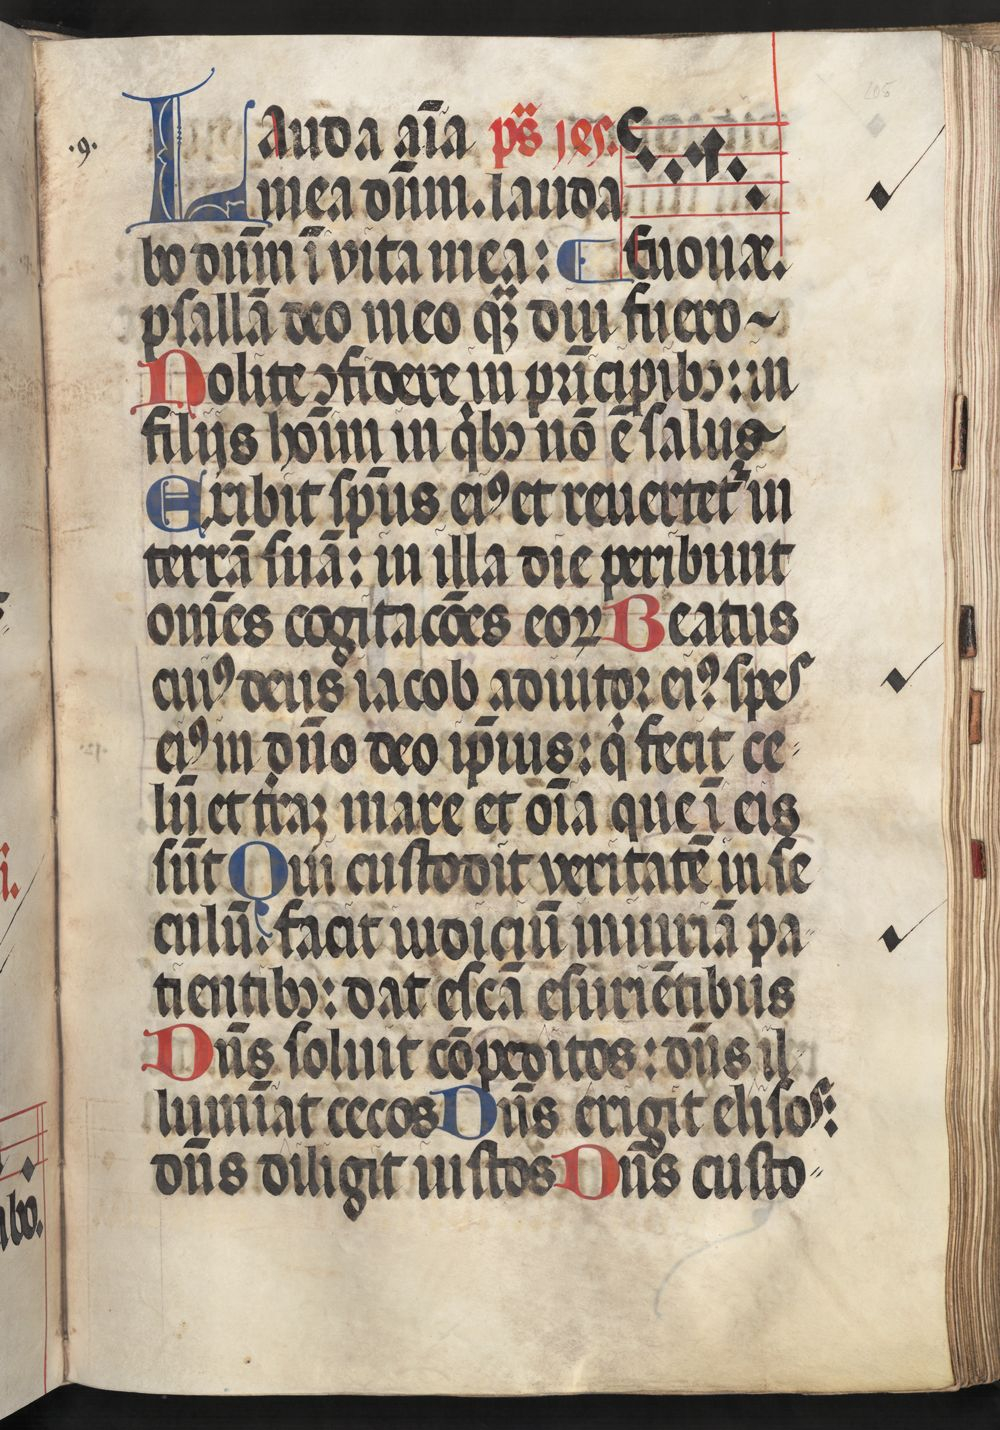 .9.
Lauda aīa p̄s jes.
mea dūm. lauda
bo dūm ī vita mea: Euouæ.
psallā deo meo qȝ diu fuero
Nolite ꝯfidere in prīcipibꝰ: in
filijs hoīm in qͥbꝰ nō ē salus
Exibit sp̄us eiꝰ et reuertetʳ in
terrā suā: in illa die peribunt
omēs cogitacōes eoꝝ Beatus
cuiꝰ deus iacob adiutor eiꝰ spes
eiꝰ in dn̄o deo ip̄ius: qͥ fecit ce-
lū et t̄raꝫ mare et oīa que ī eis
sūt Qui custodit veritatē in se
culū: facit iudiciū iniuriā pa-
tientibꝰ: dat escā esuriētibus
Dn̄s soluit cōpeditos: dn̄s il
lumīat cecos Dn̄s erigit elisos:
dn̄s diligit iustos Dn̄s custo-